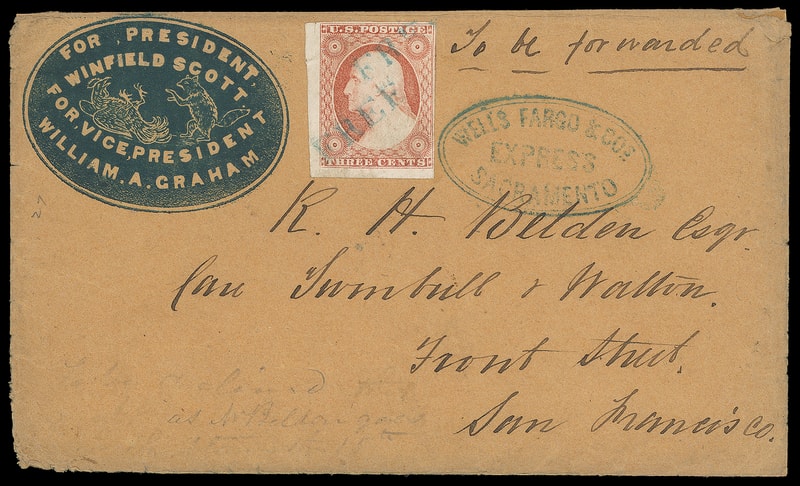 FOR PRESIDENT,
WINFIELD SCOTT.
FOR, VICE, PRESIDENT
WILLIAM. A. GRAHAM
U.S. POSTAGE
FREE
THREE CENTS
To be forwarded
WELLS FARGO & COS
EXPRESS
SACRAMENTO
R. H. Belden Esqr.
Care Turnbull & Walton.
Front Street.
San Francisco.
27